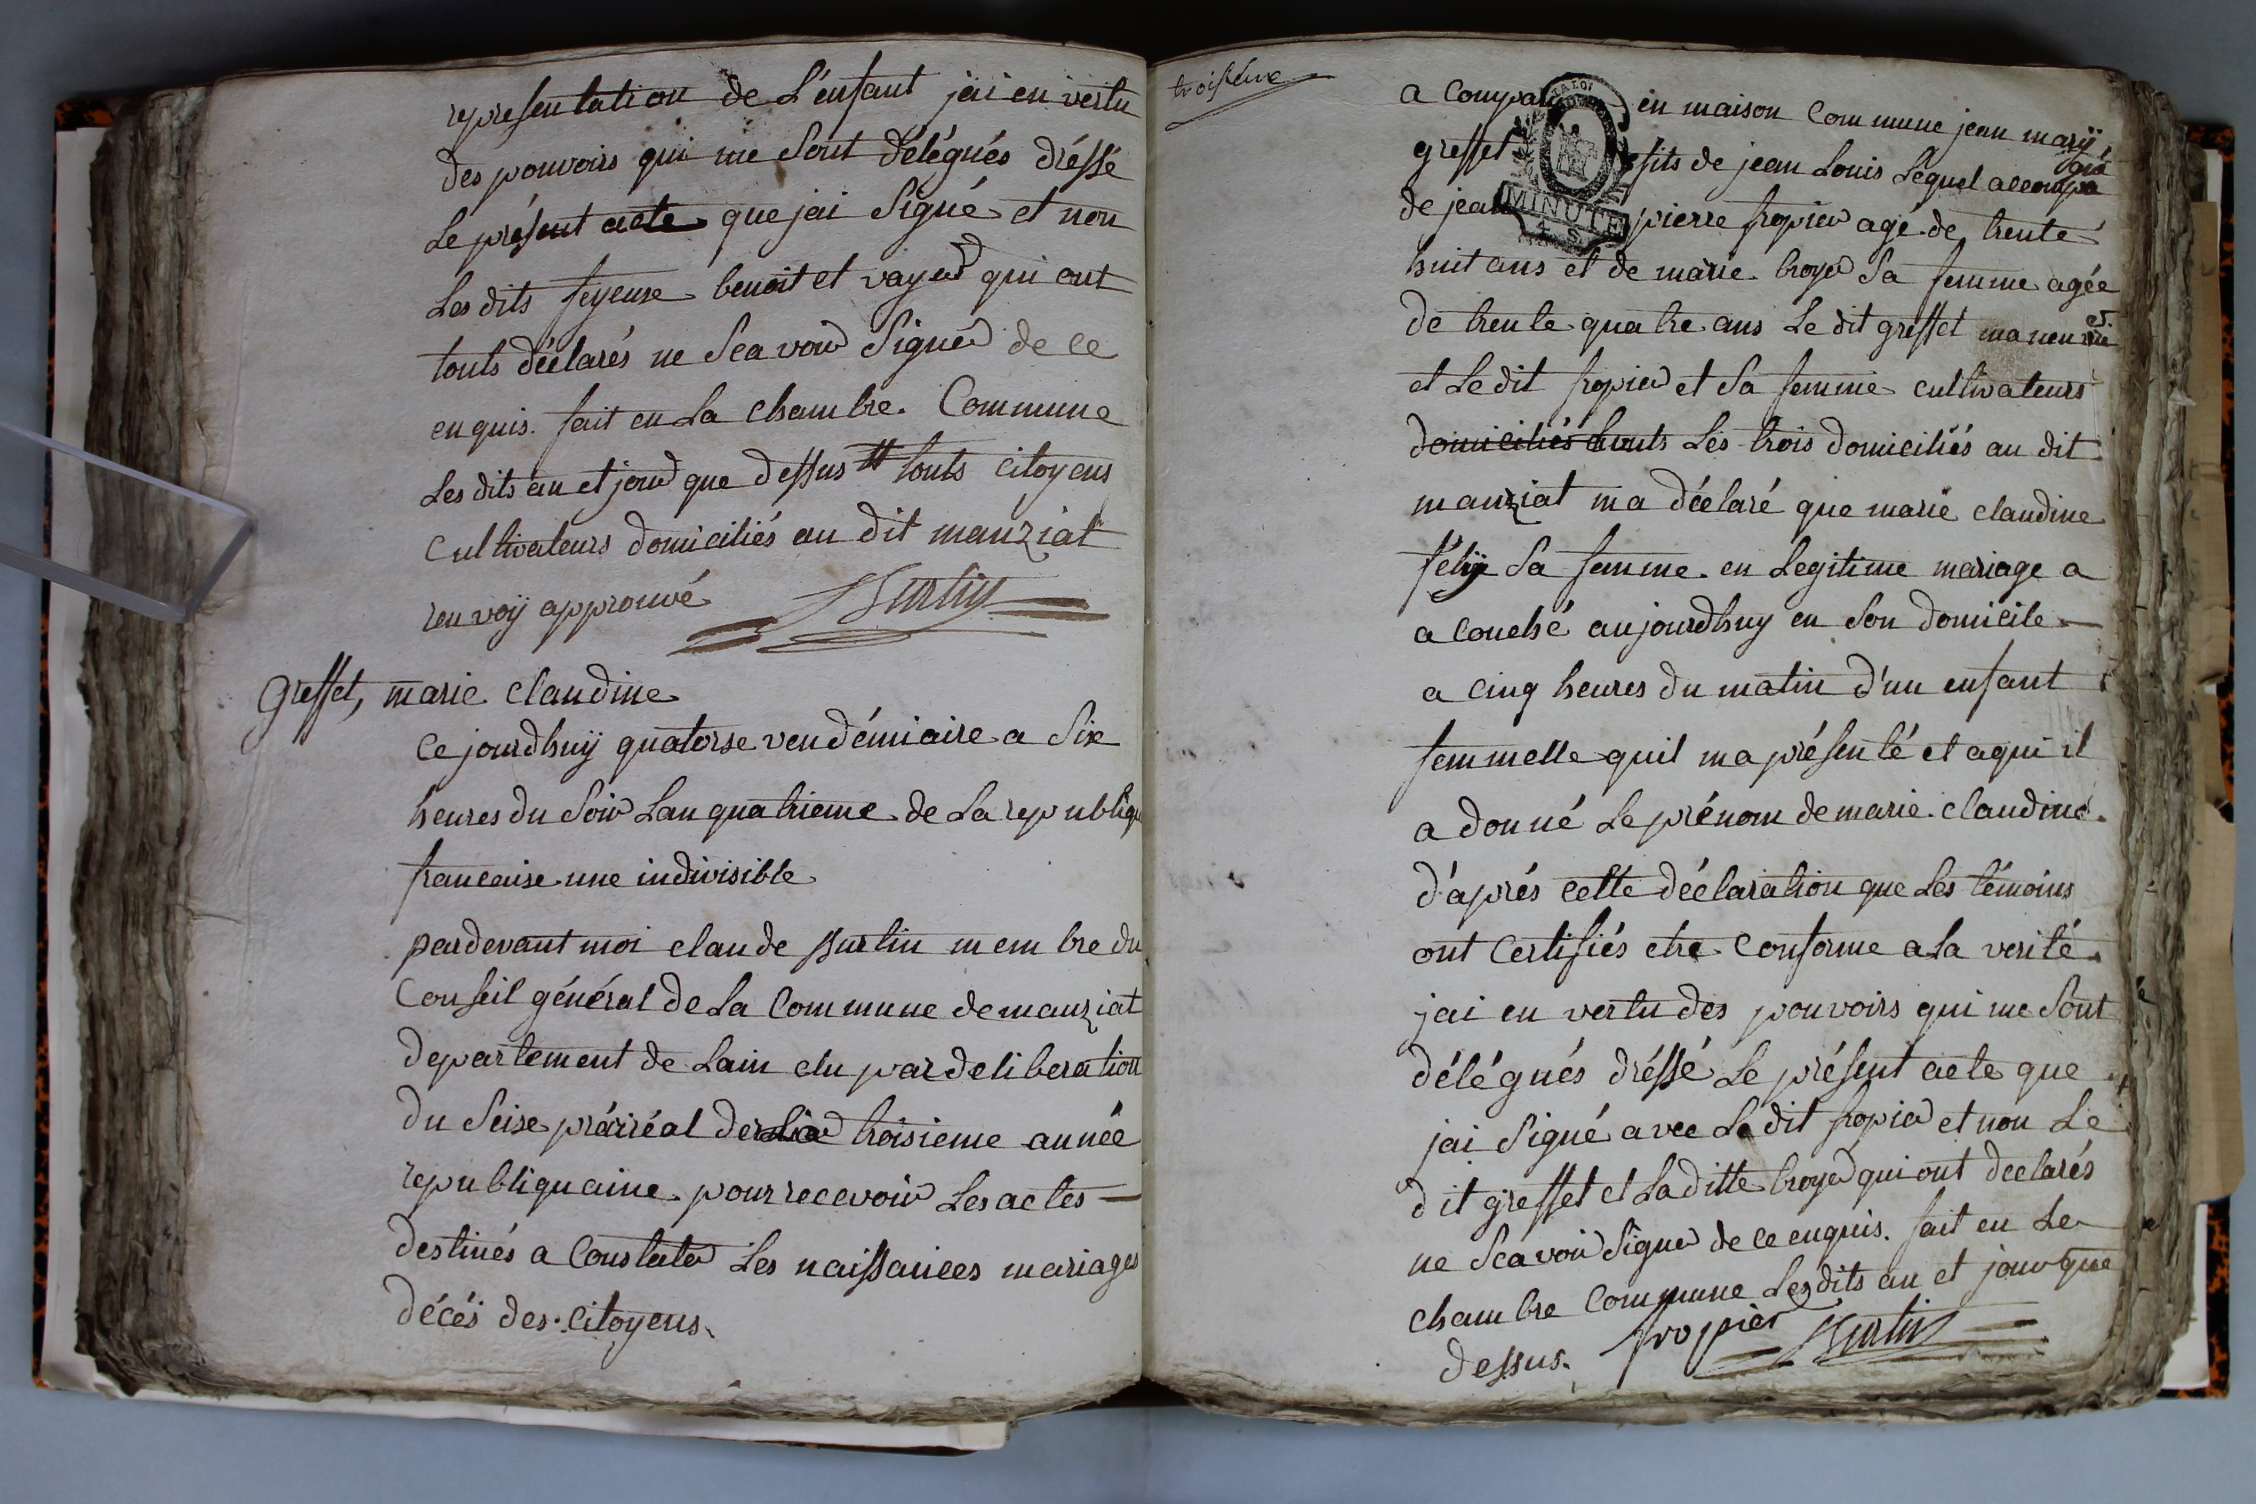 representation de L'enfant jai en vertu
des pouvoirs qui me Sont délégués dréssé
Le présent acte que jai Signé et non
Les dits feyeuse benoit et vayer qui ont
touts déclarés ne Scavoir Signer de ce
enquis. fait en La chambre Commune
Les dits an et jour que dessus # touts citoyens
cultivateurs domiciliés au dit manziat
renvoÿ approuvé Burtin
Greffet, marie claudine
ce jourdhuÿ quatorse vendémiaire a Six
heures du Soir Lan quatrieme de La republiqu
francaise une indivisible
pardevant moi claude Burtin membre du
Conseil général de La Commune de manziat
departement de Lain elu par deliberation
du Seise préréal dernier troisieme année
republiquaine pour recevoir Les actes
destinés a Constater Les naissances mariages
décés des citoyens
troiséme
a Comparu en maison Commune jean marÿ
greffet fils de jean Louis Lequel accompa
gné
de jean pierre fropier agé de trente
huit ans et de marie broyer Sa femme agée
de trente quatre ans Le dit greffet maneuvrier
et Le dit fropier et Sa femme cultivateurs
domiciliés touts Les trois domiciliés au dit
manziat ma déclaré que marie claudine
féliÿ Sa femme en Legitime mariage a
acouché aujourdhuy en Son domicile
a cinq heures du matin d'un enfant
femmelle quil ma présenté et aqui il
a donné Le prénom de marie claudine
d'aprés cette déclaration que Les témoins
ont Certifiés etre Conforme a La verité
jai en vertu des pouvoirs qui me Sont
délégués dréssé Le présent acte que
jai Signé avec Le dit fropier et non Le
dit greffet et La ditte broyer qui ont declarés
ne Scavoir Signer de ce enquis. fait en Le
chambre Commune Les dits an et jour que
dessus. fropier Burtin
MINUTE
4 S